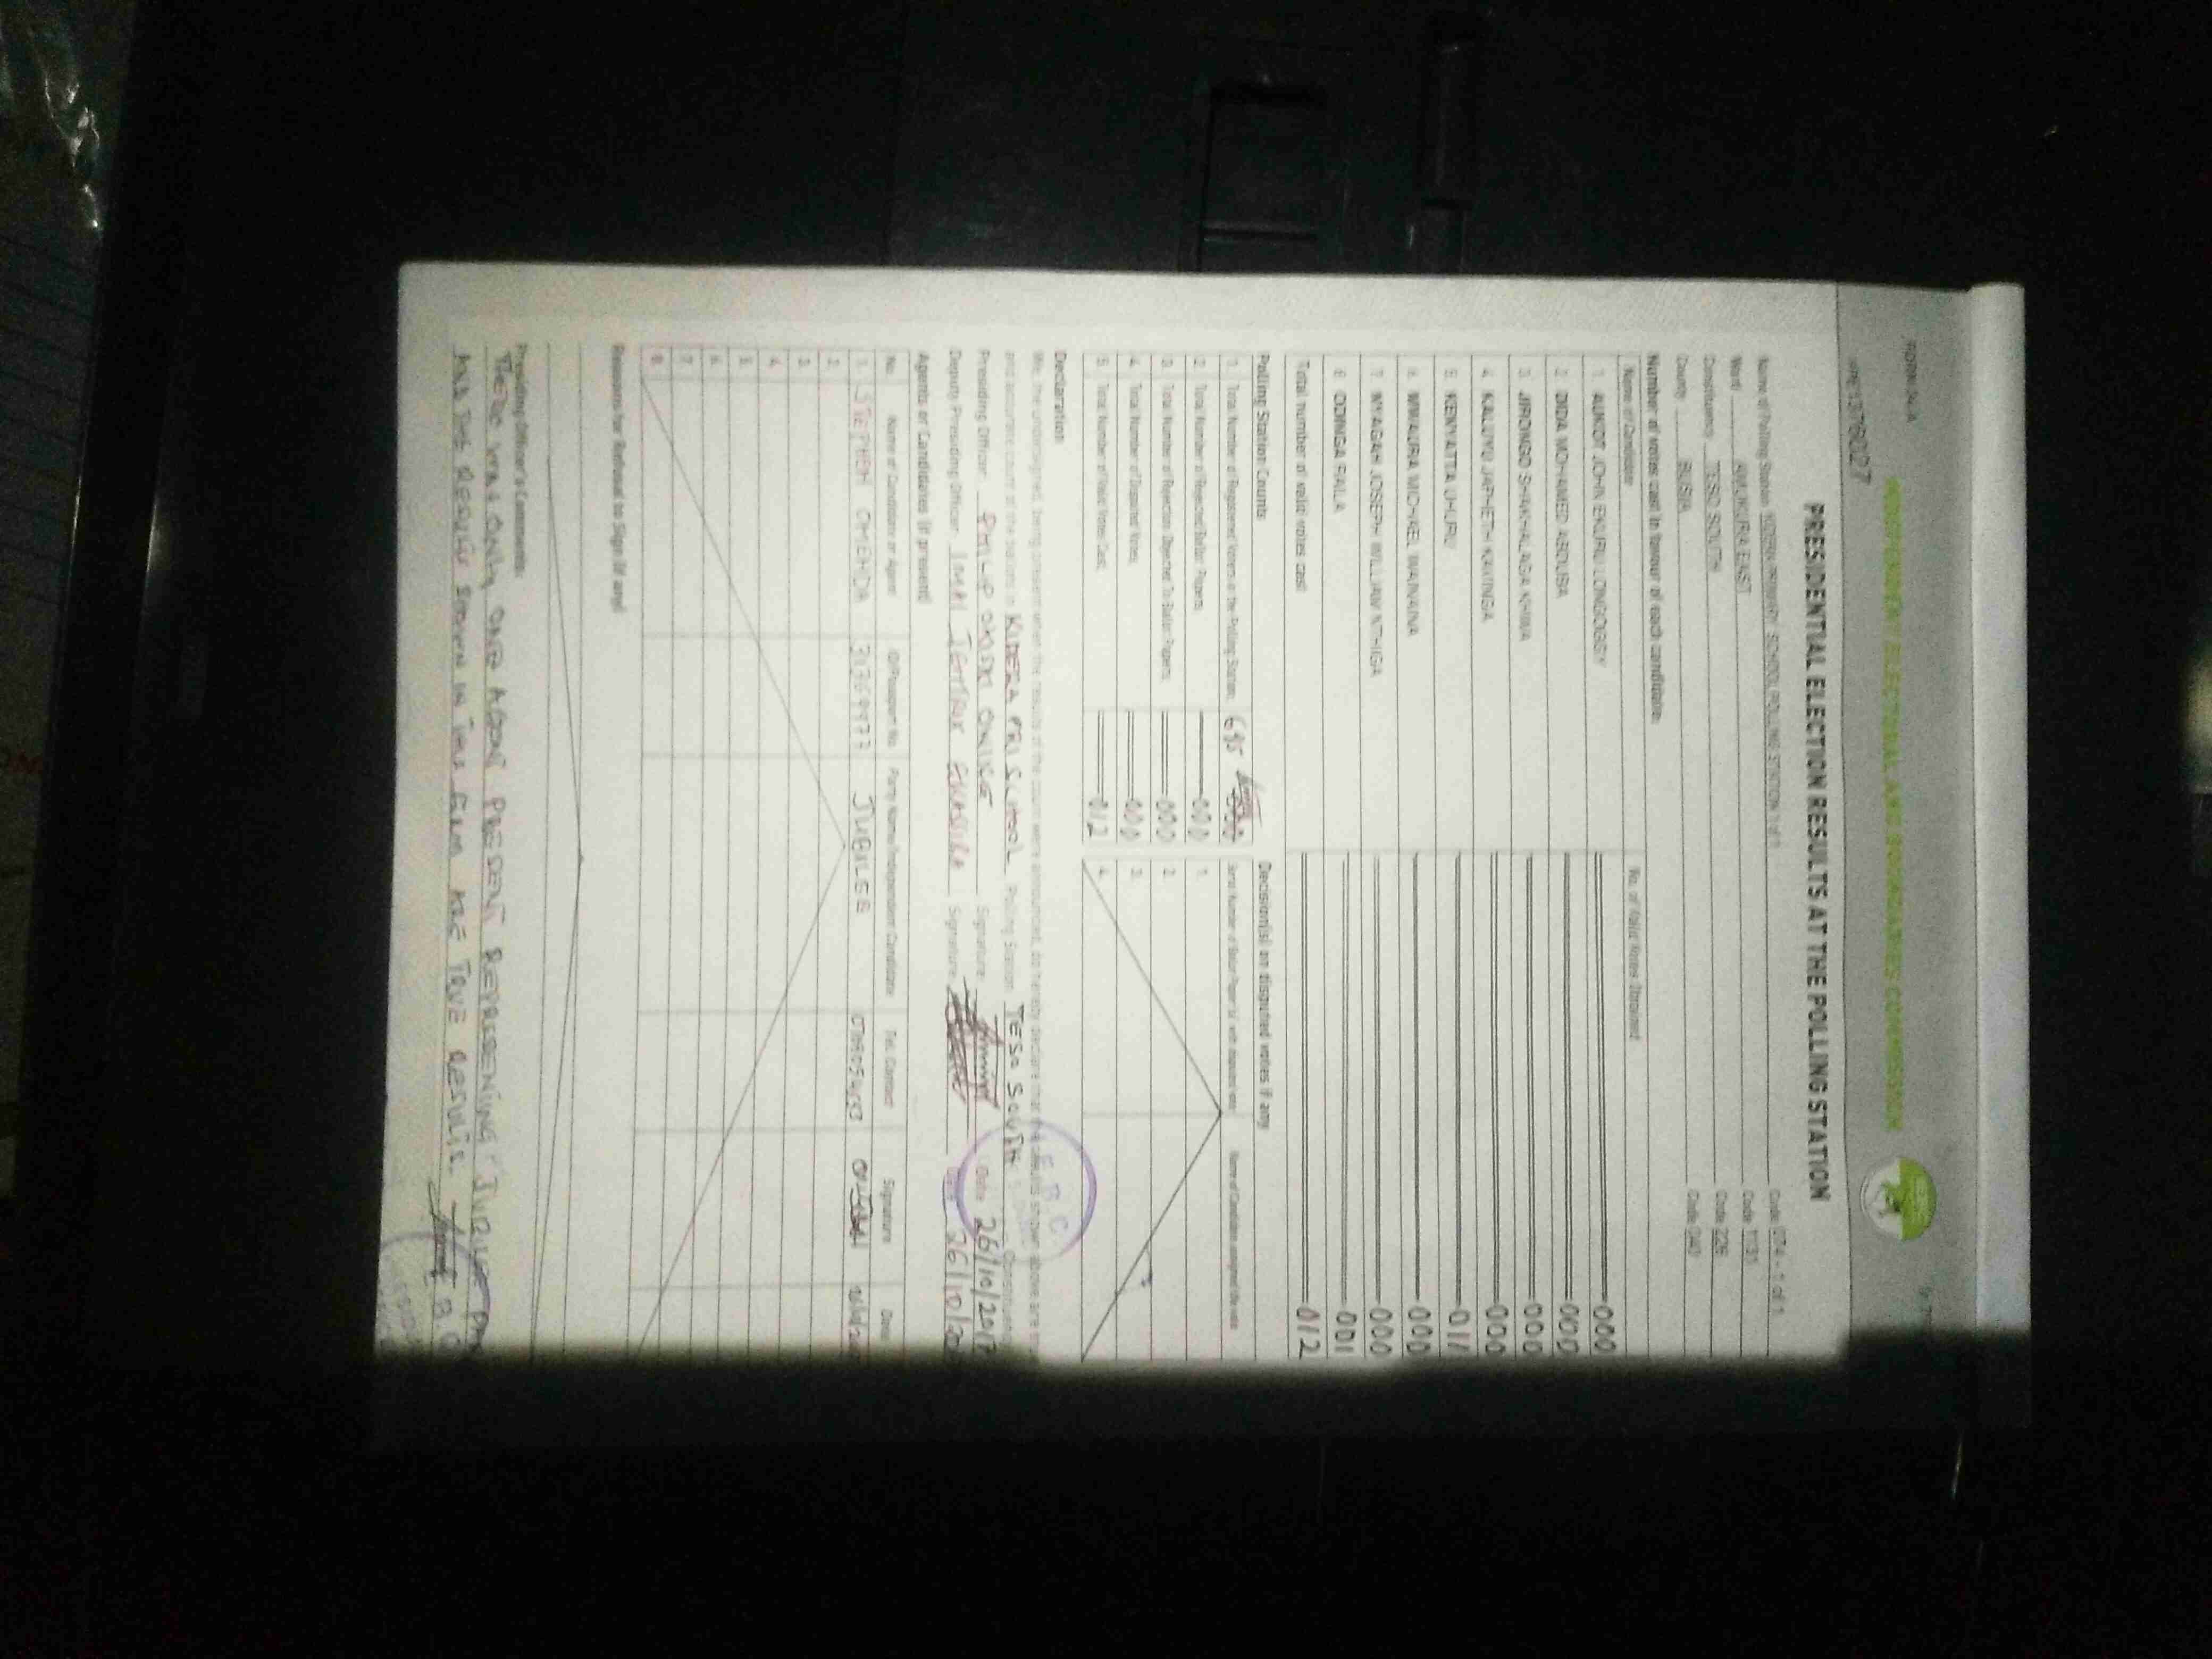 FORM 34A
INDEPENDENT ELECTORAL AND BOUNDARIES COMMISSION
PRESIDENTIAL ELECTION RESULTS AT THE POLLING STATION
Name of Polling Station PRIMARY SCHOOL POLLING STATION 1 of 1 Code 074 - 1 of 1
Ward AMUKURA EAST Code 1131
Constituency TESO SOUTH Code 226
County BUSIA Code 040
Number of votes cast in favour of each candidate:
Name of Candidate No. of Valid Votes Obtained
1. AUKOT JOHN EKURU LONGOGGY 000
2. DIDA MOHAMED ABDUBA 000
3. JIRONGO SHAKHALAGA KHWA 000
4. KALUYU JAPHETH KAVINGA 000
5. KENYATTA UHURU 011
6. MWAURA MICHAEL WAINAINA 000
7. NYAGAH JOSEPH WILLIAM NTHIGA 000
8. ODINGA RAILA 001
Total number of valid votes cast 012
Polling Station Counts Decision(s) on disputed votes if any
1. Total Number of Registered Voters in the Polling Station 695
2. Total Number of Rejected Ballot Papers 000 1.
3. Total Number of Rejection Objected To Ballot Papers 000 2.
4. Total Number of Disputed Votes 000 3.
5. Total Number of Valid Votes Cast 012 4.
Declaration
We, the undersigned, being present when the results of the count were announced, do hereby declare that the results shown above are
and accurate count of the ballots in KIDERA PRI SCHOOL Polling Station TESO SOUTH Constituency
Presiding Officer Signature Date 26/10/2017
Deputy Presiding Officer Signature 26/10/20
Agents or Candidates (if present)
No. Name of Candidate or Agent ID/Passport No. Party Name/Independent Candidate Tel. Contact Signature Date
1. STEPHEN OMENDA JUBILEE
2.
3.
4.
5.
6.
7.
8.
Reasons for Refusal to Sign (if any)
Presiding Officer's Comments:
THERE WAS ONLY ONE AGENT PRESENT REPRESENTING JUBILEE
AND THE RESULTS SHOWN IN THIS FORM ARE TRUE RESULTS.